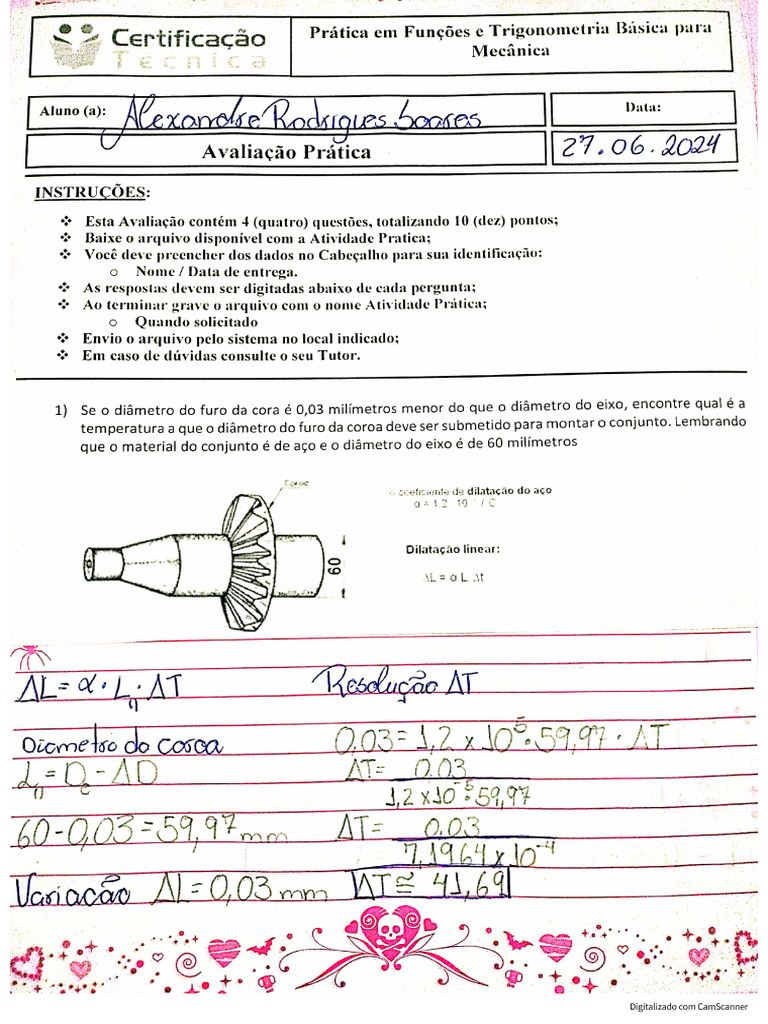 Certificação
Técnica
Prática em Funções e Trigonometria Básica para
Mecânica
Aluno (a): Alexandre Rodrigues Soares
Data:
Avaliação Prática
27.06.2024
INSTRUÇÕES:
❖ Esta Avaliação contém 4 (quatro) questões, totalizando 10 (dez) pontos;
❖ Baixe o arquivo disponível com a Atividade Pratica;
❖ Você deve preencher dos dados no Cabeçalho para sua identificação:
o Nome / Data de entrega.
❖ As respostas devem ser digitadas abaixo de cada pergunta;
❖ Ao terminar grave o arquivo com o nome Atividade Prática;
o Quando solicitado
❖ Envio o arquivo pelo sistema no local indicado;
❖ Em caso de dúvidas consulte o seu Tutor.
1) Se o diâmetro do furo da cora é 0,03 milímetros menor do que o diâmetro do eixo, encontre qual é a
temperatura a que o diâmetro do furo da coroa deve ser submetido para montar o conjunto. Lembrando
que o material do conjunto é de aço e o diâmetro do eixo é de 60 milímetros
Coroa
o coeficiente de dilatação do aço
60
Dilatação linear:
ΔL = α L. Δt
ΔL = α · L₀ · ΔT
Resolução ΔT
Diametro do coroa
0,03 = 1,2 x 10⁻⁵ · 59,97 · ΔT
L₀ = Dc - ΔD
ΔT = 0,03
1,2 x 10⁻⁵ · 59,97
60 - 0,03 = 59,97 mm
ΔT = 0,03
7,1964 x 10⁻⁴
Variacão ΔL = 0,03 mm
ΔT ≅ 41,69
Digitalizado com CamScanner